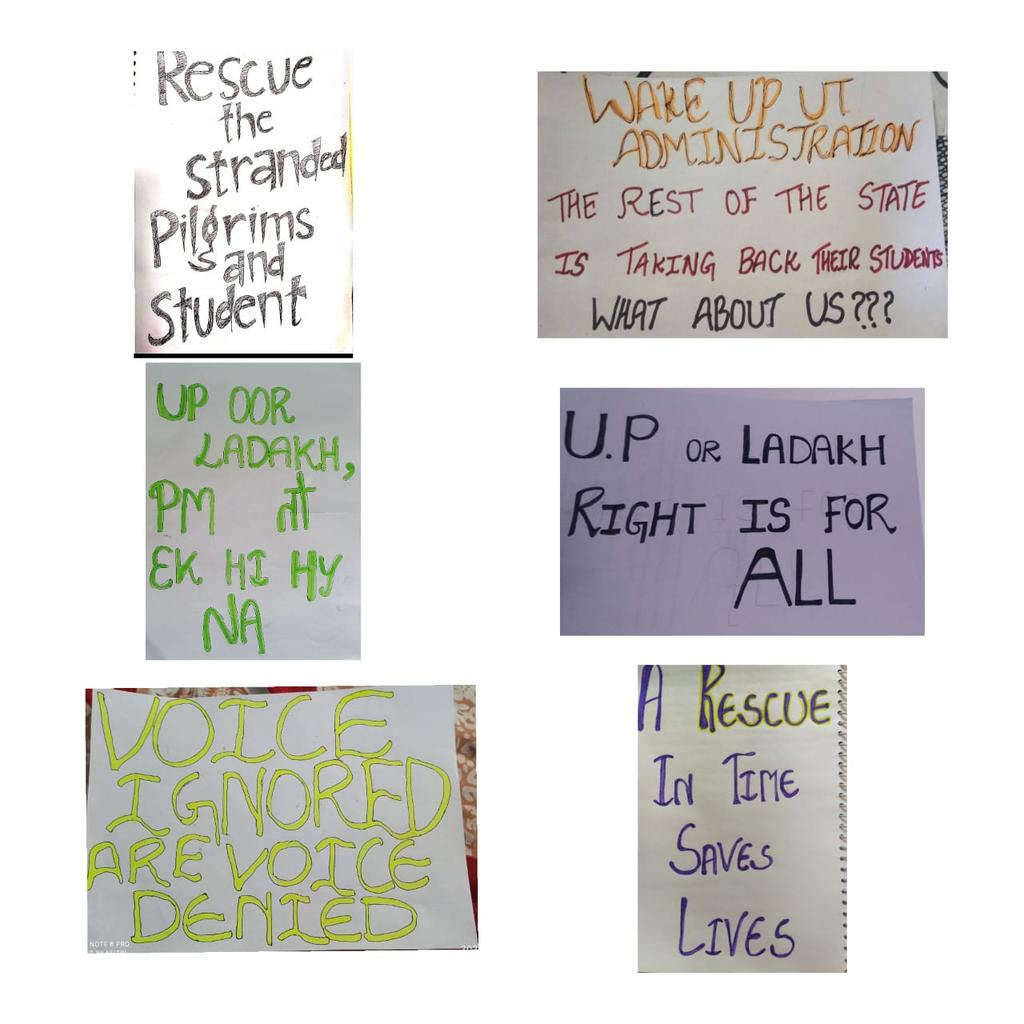 Rescue
the
stranded
Pilgrims
and
Student
WAKE UP UT
ADMINISTRATION
THE REST OF THE STATE
IS TAKING BACK THEIR STUDENTS
WHAT ABOUT US???
UP OOR
LADAKH,
PM तो
EK HI HY
NA
U.P OR LADAKH
RIGHT IS FOR
ALL
VOICE
IGNORED
ARE VOICE
DENIED
NOTE 8 PRO
A RESCUE
IN TIME
SAVES
LIVES